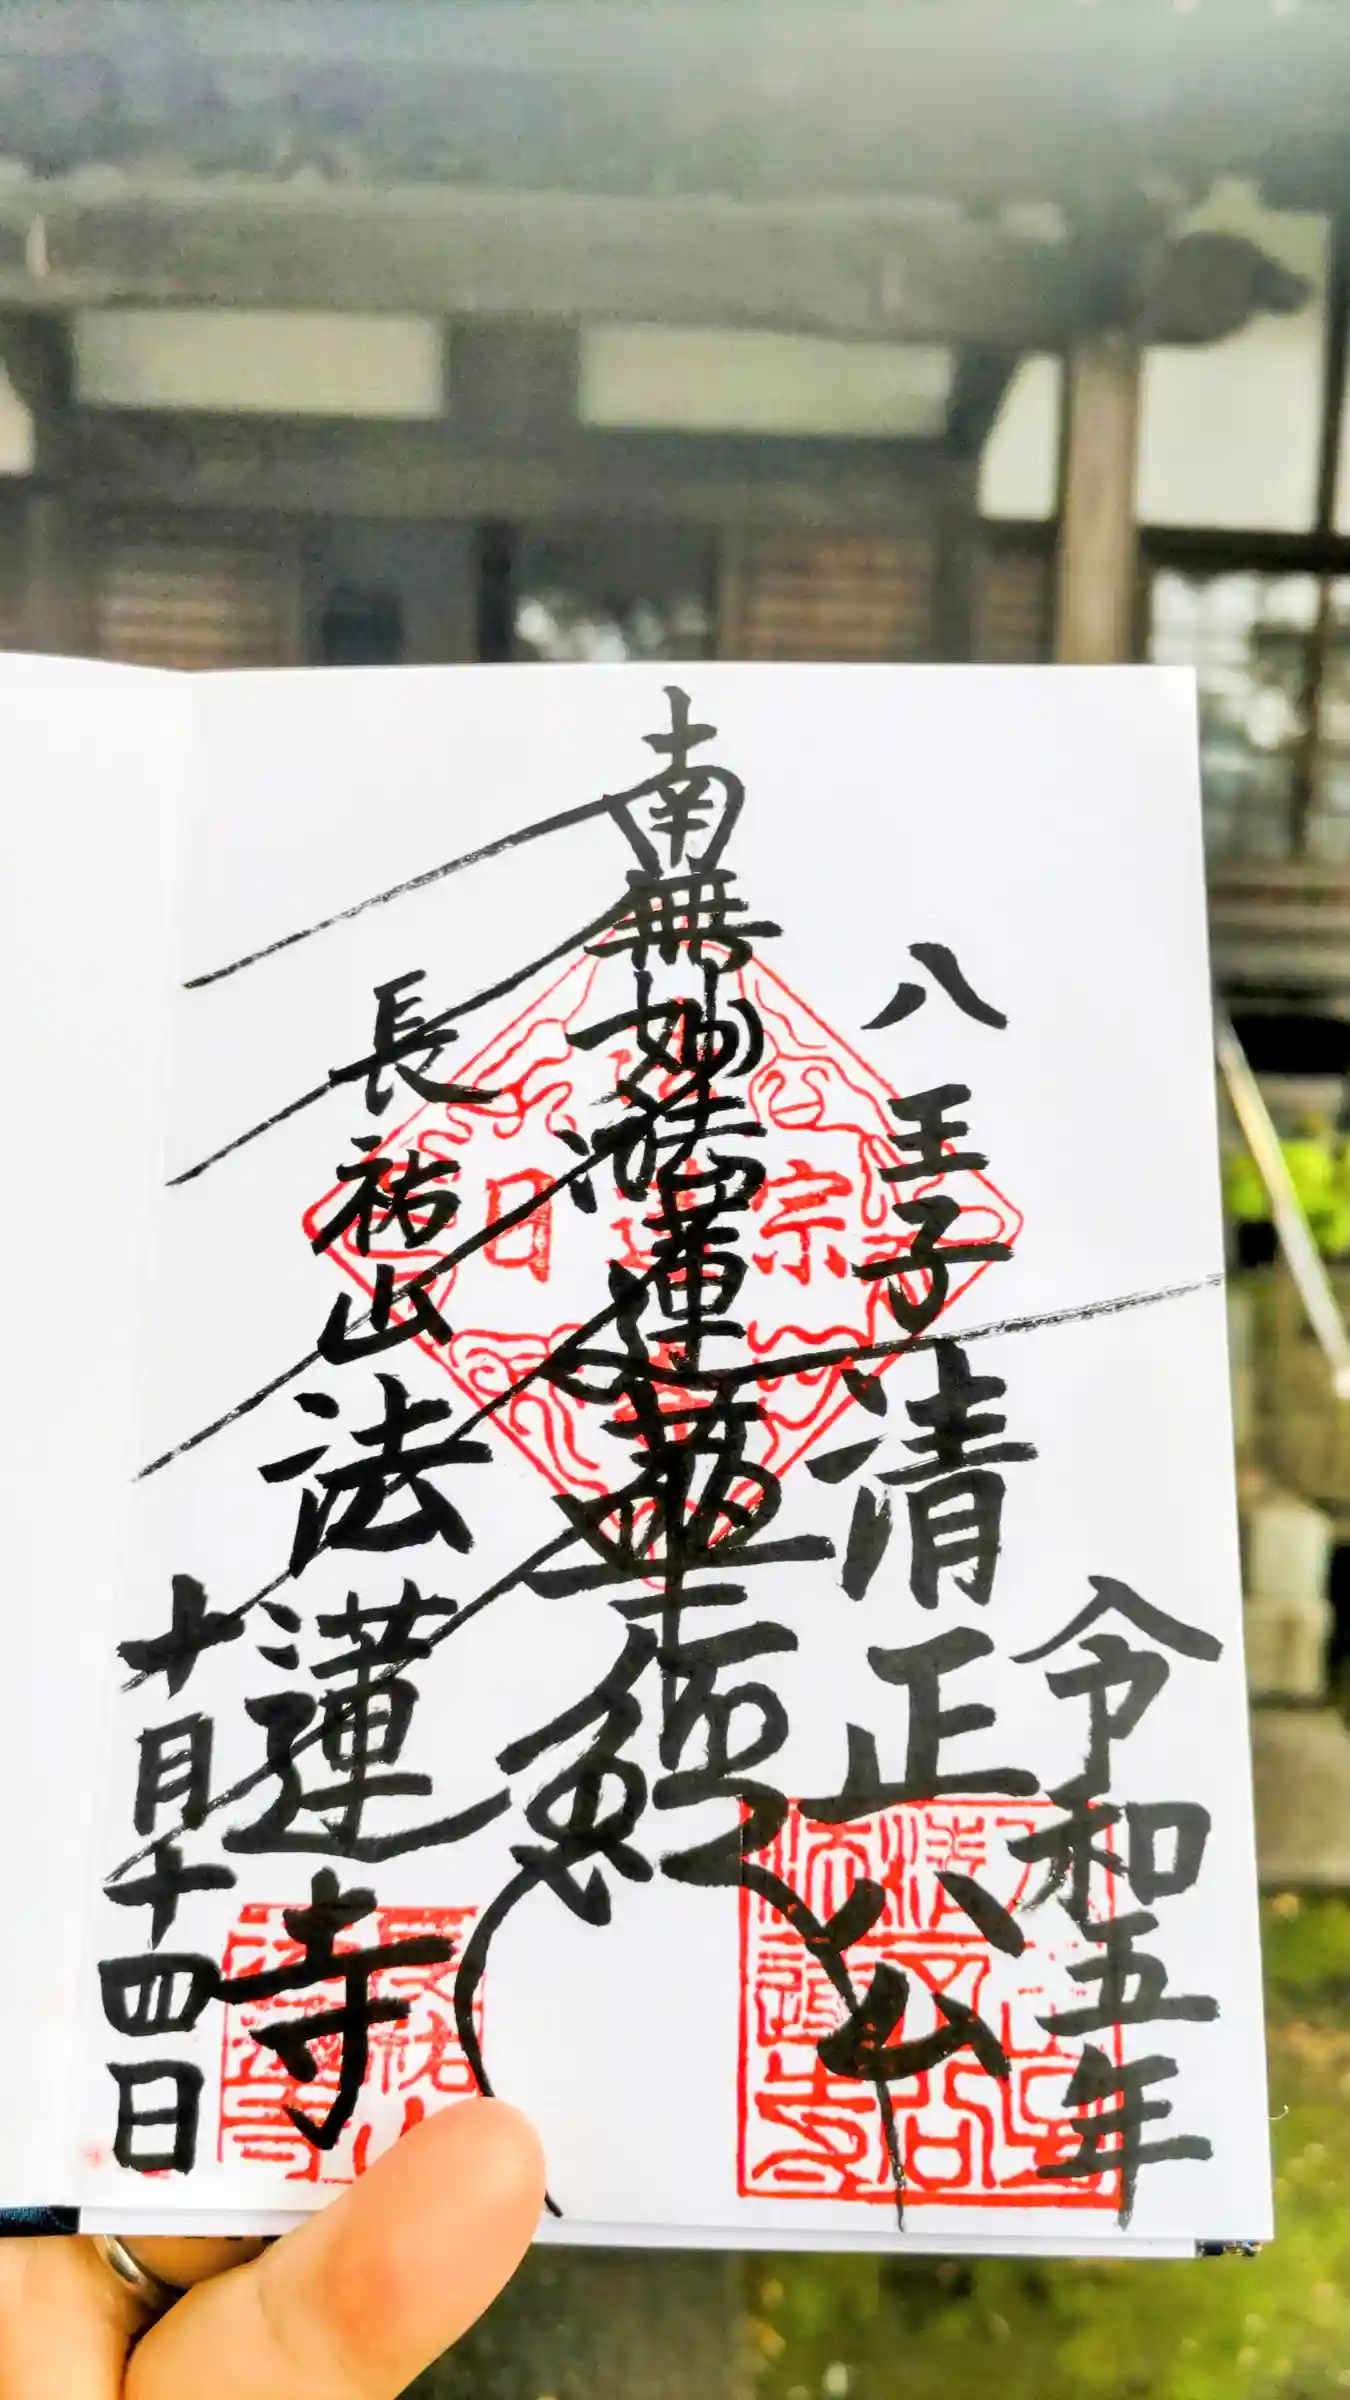 令和五年
八王子 清正公
南無妙法蓮華経
長祐山 法蓮寺
十月十四日
日蓮宗